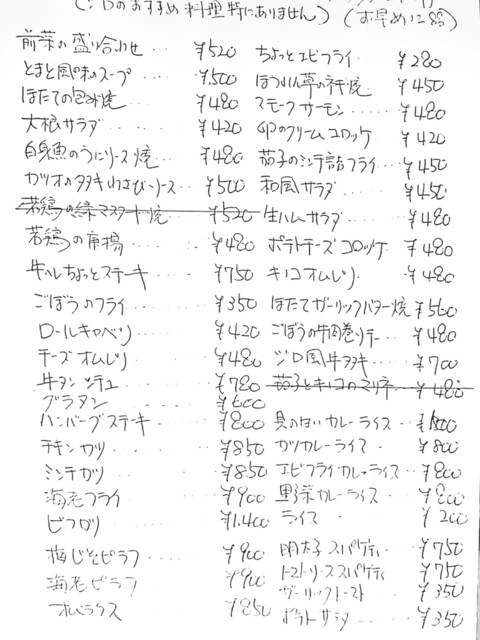 (ジロのおすすめ料理特にありません。) (お早めに
前菜の盛り合わせ ¥520
とまと風味のスープ ¥500
ほたての包み焼 ¥480
大根サラダ ¥420
白身魚のうにソース焼 ¥480
カツオのタタキわさびソース ¥500
若鶏の緑マスタード焼 ¥520
若鶏の ¥480
牛ヒレちょっとステーキ ¥750
ごぼうのフライ ¥350
ロールキャベツ ¥420
チーズオムレツ ¥480
牛タンシチュー ¥780
グラタン ¥600
ハンバーグステーキ ¥800
チキンカツ ¥850
ミンチカツ ¥850
海老フライ ¥900
ビフカツ ¥1,400
梅じそピラフ ¥900
海老ピラフ ¥900
オムライス ¥850
ちょっとエビフライ ¥280
ほうれん草の ¥450
スモークサーモン ¥480
クリームコロッケ ¥420
茄子のミンチ詰フライ ¥450
和風サラダ ¥450
生ハムサラダ ¥480
ポテトチーズコロッケ ¥480
キノコオムレツ ¥480
ほたてガーリックバター焼 ¥500
ごぼうの牛肉巻ソテー ¥480
ジロ風牛タタキ ¥700
茄子とキノコのマリネ ¥480
具のないカレーライス
カツカレーライス ¥800
エビフライカレーライス ¥800
野菜カレーライス ¥800
ライス ¥200
明太子スパゲティ ¥750
トマトソーススパゲティ ¥750
ガーリックトースト ¥350
ポテトサラダ ¥350